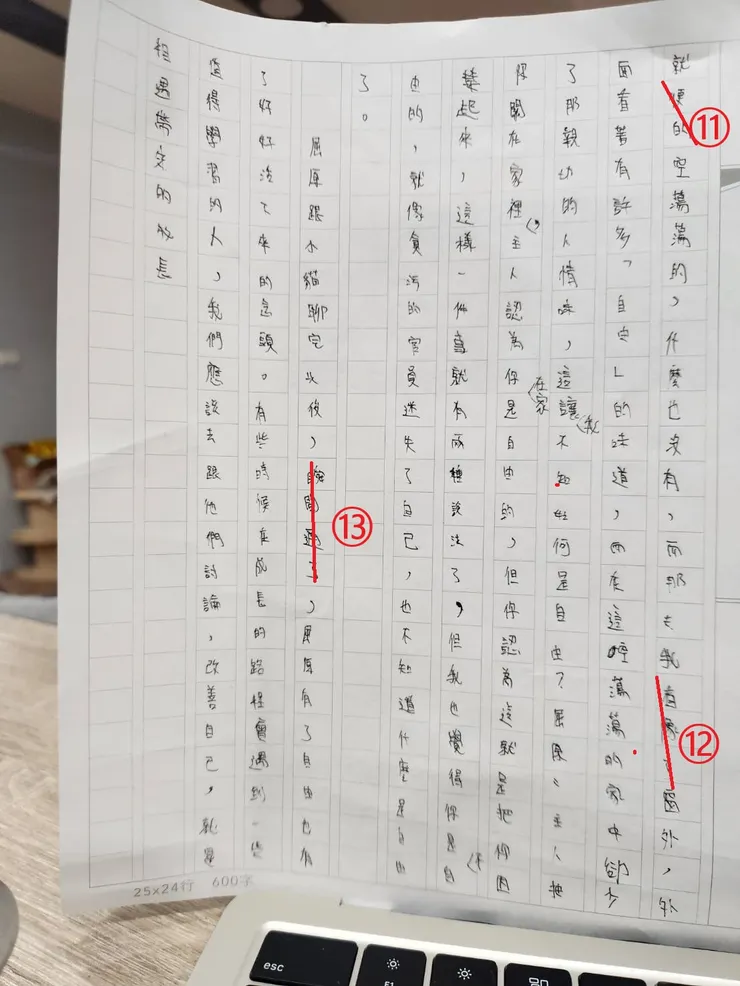 就便的空蕩蕩的，什麼也沒有，而那天我看像了窗外，外
面看著有許多「自由」的味道，而在這空蕩蕩的家中卻少
了那親切的人情味，這讓我不知如何是自由？屈原：主人把
你關在家裡，主人認為你在家是自由的，但你認為這就是把你困
難起來，這樣一件事就有兩種說法了，但我也覺得你是自
由的，就像貪污的官員迷失了自己，也不知道什麼是自由
了。
屈原跟小貓聊完以後，瞬間通了，屈原有了自由也有
了好好活下來的念頭。有些時候在成長的路程會遇到一些
值得學習的人，我們應該去跟他們討論，改善自己，就是
相遇奠定的成長
25x24行 600字
⑪
⑫
⑬
esc
F1